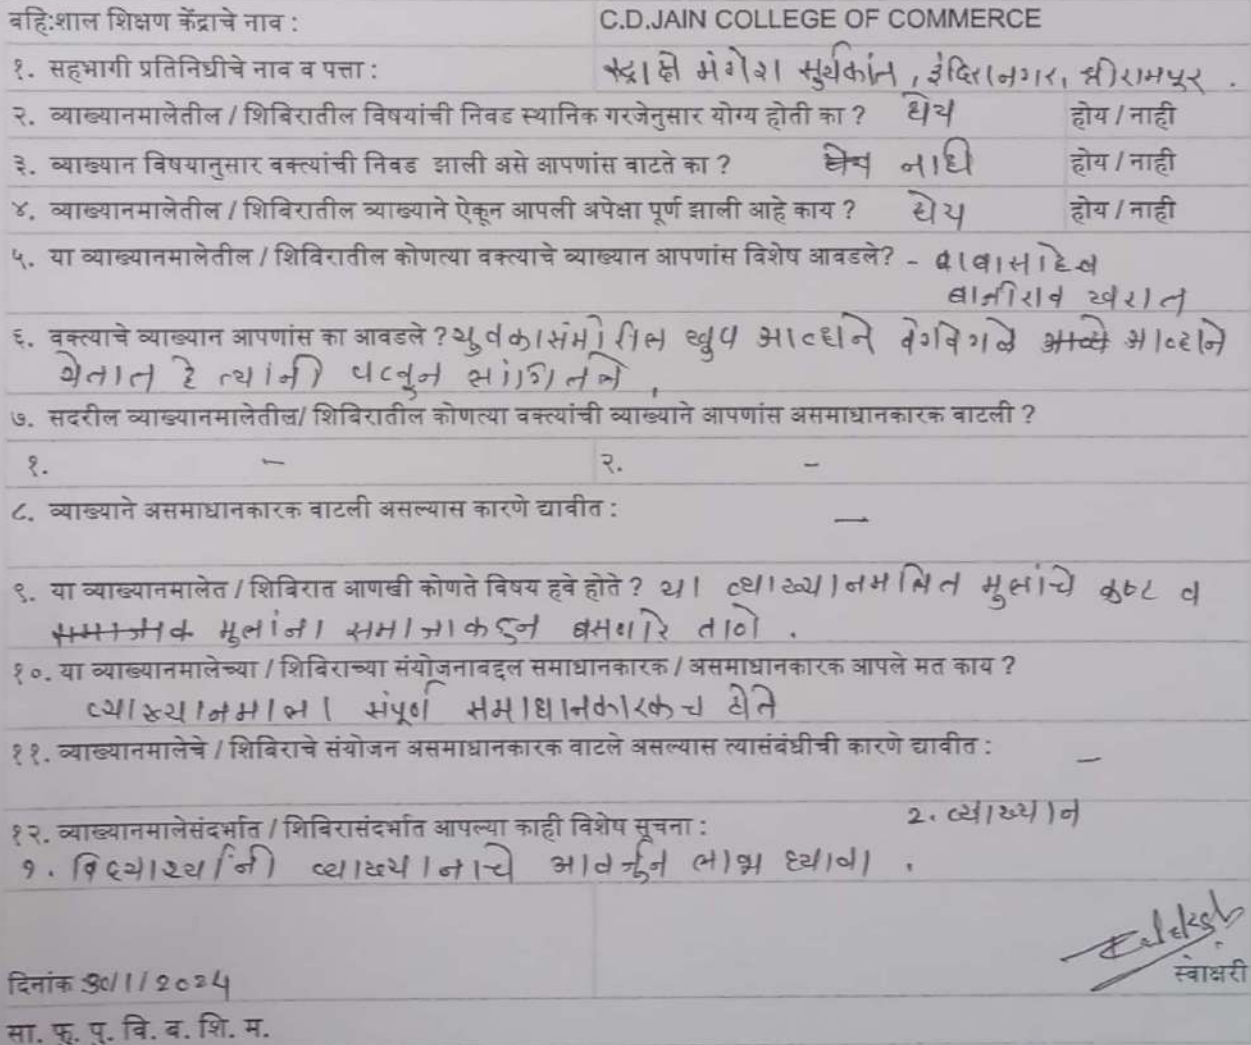 बहि:शाल शिक्षण केंद्राचे नाव : C.D.JAIN COLLEGE OF COMMERCE
१. सहभागी प्रतिनिधीचे नाव व पत्ता : रुद्राक्षे मंगेश सुर्यकांत, इंदिरानगर, श्रीरामपूर .
२. व्याख्यानमालेतील / शिबिरातील विषयांची निवड स्थानिक गरजेनुसार योग्य होती का ? होय होय / नाही
३. व्याख्यान विषयानुसार वक्त्यांची निवड झाली असे आपणांस वाटते का ? नाही होय / नाही
४. व्याख्यानमालेतील / शिबिरातील व्याख्याने ऐकून आपली अपेक्षा पूर्ण झाली आहे काय ? होय होय / नाही
५. या व्याख्यानमालेतील / शिबिरातील कोणत्या वक्त्याचे व्याख्यान आपणांस विशेष आवडले? - बाबासाहेब
बाजीराव खरात
६. वक्त्याचे व्याख्यान आपणांस का आवडले ? खुप आव्हाने वेगवेगळे आव्हाने
येतात हे त्यांनी पटवून सांगितले .
७. सदरील व्याख्यानमालेतील/ शिबिरातील कोणत्या वक्त्यांची व्याख्याने आपणांस असमाधानकारक वाटली ?
१. - २. -
८. व्याख्याने असमाधानकारक वाटली असल्यास कारणे द्यावीत : -
९. या व्याख्यानमालेत / शिबिरात आणखी कोणते विषय हवे होते ? या मुलांचे कष्ट व
मुलांना समाजाकडून बसणारे ताणे .
१०. या व्याख्यानमालेच्या / शिबिराच्या संयोजनाबद्दल समाधानकारक / असमाधानकारक आपले मत काय ?
व्याख्यानमाला संपूर्ण समाधानकारकच होते
११. व्याख्यानमालेचे / शिबिराचे संयोजन असमाधानकारक वाटले असल्यास त्यासंबंधीची कारणे द्यावीत : -
१२. व्याख्यानमालेसंदर्भात / शिबिरासंदर्भात आपल्या काही विशेष सूचना : २. व्याख्यान
१. विद्यार्थ्यांनी व्याख्यानाचे आवर्जुन लाभ घ्यावा .
स्वाक्षरी
दिनांक 30/1/2024
सा. फु. पु. वि. ब. शि. म.